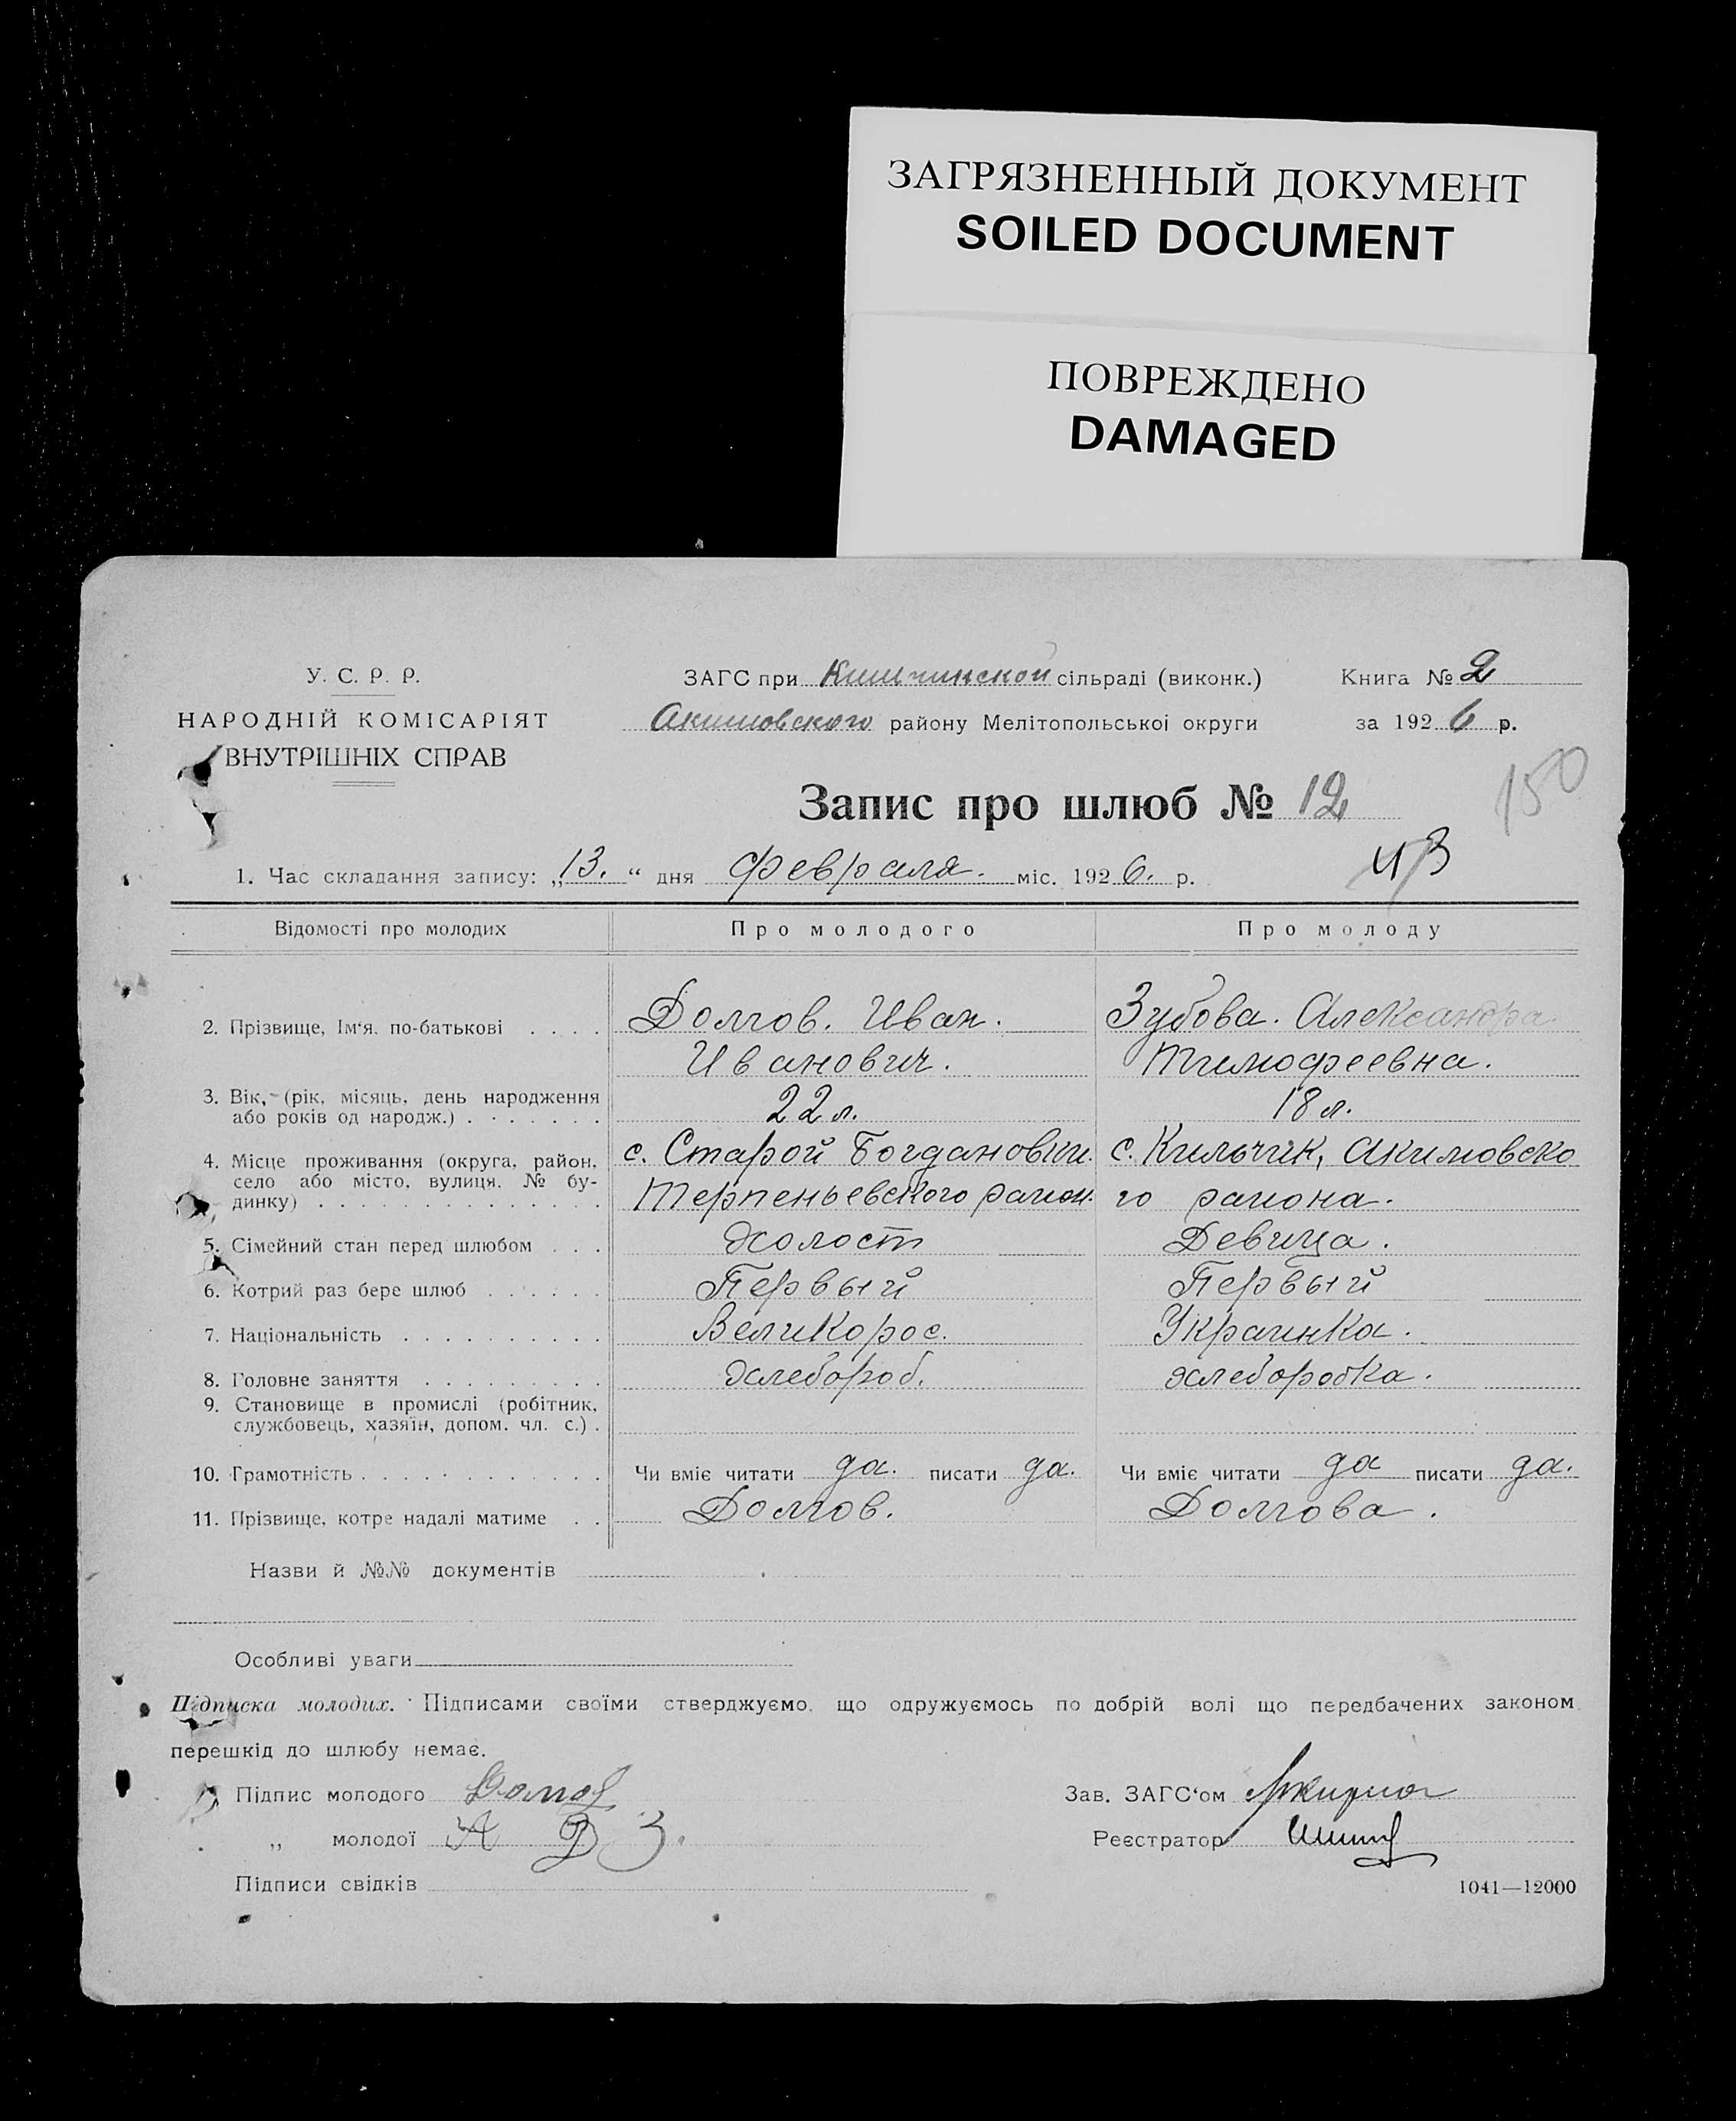 ЗАГРЯЗНЕННЫЙ ДОКУМЕНТ
SOILED DOCUMENT
ПОВРЕЖДЕНО
DAMAGED
У. С. Р. Р.
НАРОДНІЙ КОМІСАРІЯТ
ВНУТРІШНІХ СПРАВ
ЗАГС при Кильчикской сільраді (виконк.)
Акимовского району Мелітопольської округи
Книга № 2
за 1926 р.
150
Запис про шлюб № 12
43
1. Час складання запису: „13.“ дня февраля. міс. 1926. р.
Відомості про молодих Про молодого Про молоду
2. Прізвище, Ім‘я, по-батькові . . . . Долгов. Иван. Зубова. Александра
Иванович. Тимофеевна.
3. Вік, (рік, місяць, день народження
або років од народж.) . . . . . . . 22 л. 18 л.
4. Місце проживання (округа, район,
село або місто, вулиця, № бу-
динку) . . . . . . . . . . . . . .
с. Старой Богдановки. с. Кильчик, Акимовско
Терпеньевского район. го района.
5. Сімейний стан перед шлюбом . . . холост Девица.
6. Котрий раз бере шлюб . . . . . . Первый Первый
7. Національність . . . . . . . . . . Великорос. Украинка.
8. Головне заняття . . . . . . . . . хлебороб. хлеборобка.
9. Становище в промислі (робітник,
службовець, хазяїн, допом. чл. с.) .
10. Грамотність . . . . . . . . . . . . Чи вміє читати да. писати да. Чи вміє читати да писати да.
11. Прізвище, котре надалі матиме . . Долгов. Долгова.
Назви й №№ документів
Особливі уваги
Підписка молодих. Підписами своїми стверджуємо, що одружуємось по добрій волі що передбачених законом
перешкід до шлюбу немає.
Підпис молодого Долгов
„ молодої А Д З.
Підписи свідків
Зав. ЗАГС‘ом
Реєстратор
1041—12000